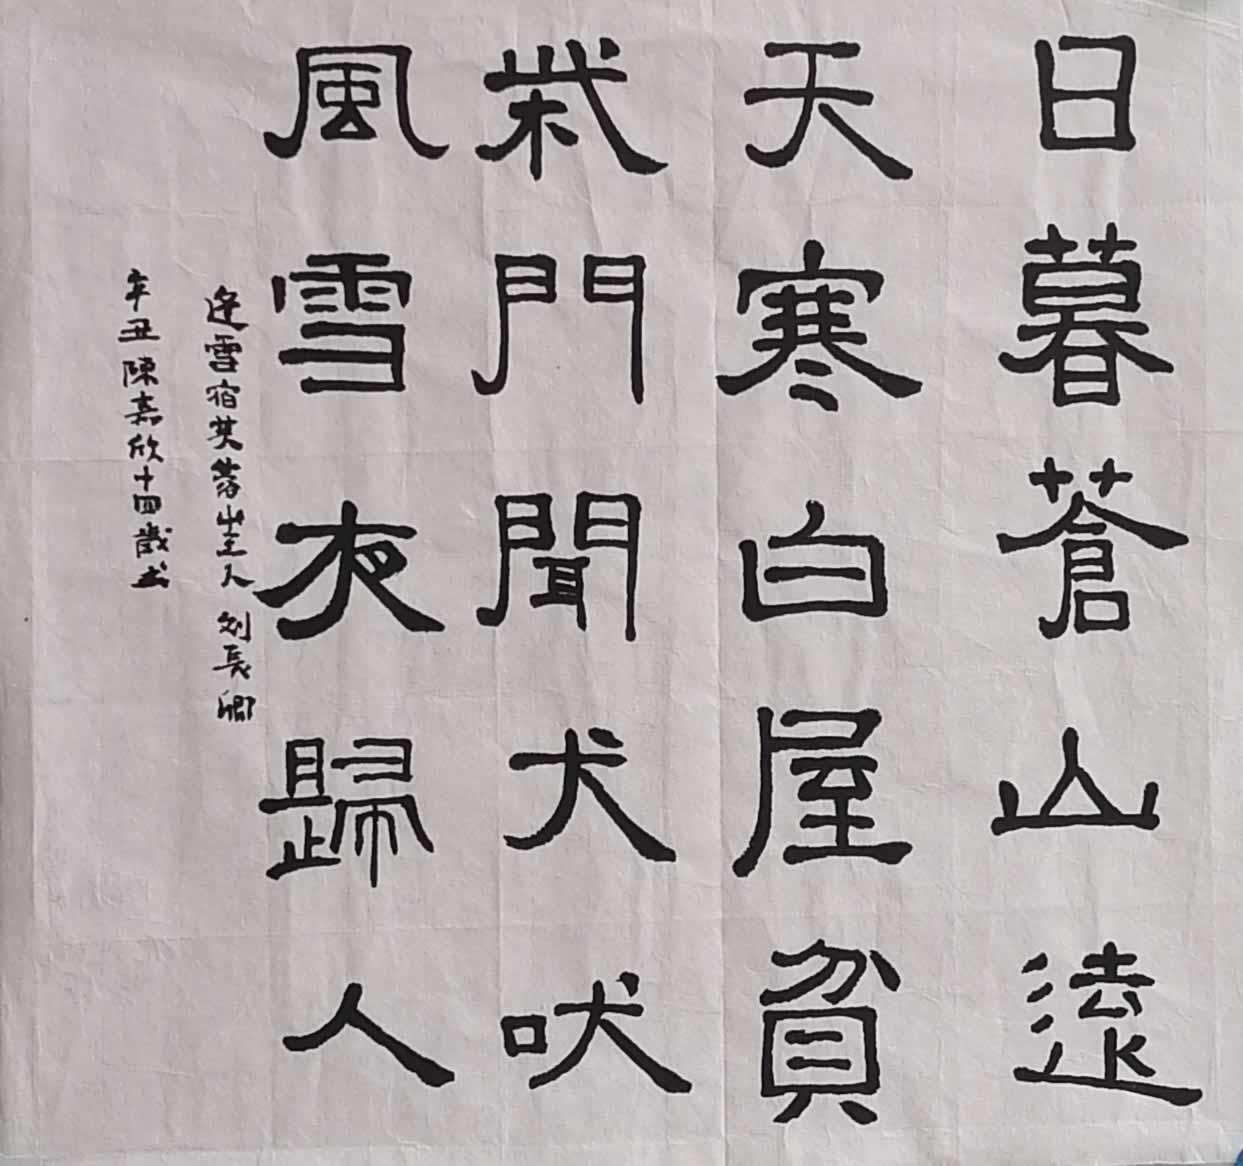 日暮蒼山遠
天寒白屋貧
柴門聞犬吠
風雪夜歸人
逢雪宿芙蓉山主人 刘長卿
辛丑 陳嘉欣十四歲书